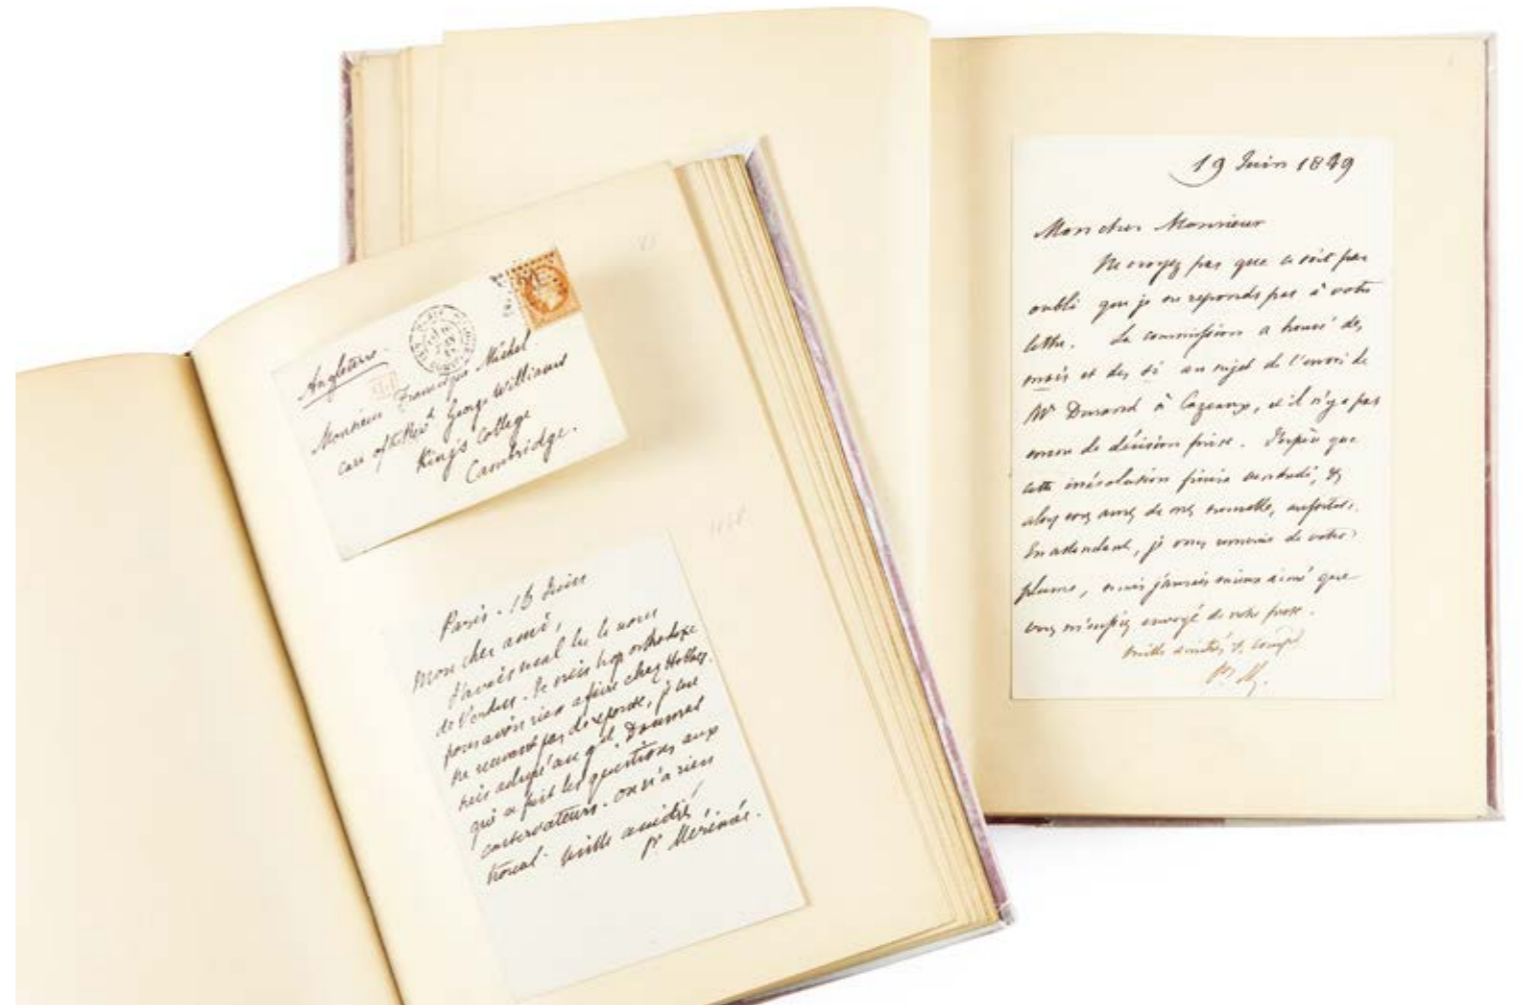 Angleterre
Monsieur Francisque Michel
care of the Revd George Williams
King's College
Cambridge.
Paris. 16 Juin
Mon cher ami,
J'avais mal lu le nom
de Verdier. Je suis trop orthodoxe
pour avoir rien à faire chez
ne recevant pas de réponse, je me
suis adressé au gal. Daumas
qui a fait les questions aux
conservateurs. on n'a rien
trouvé. mille amitiés,
Pr Mérimée.
19 Juin 1849
Mon cher Monsieur
Ne croyez pas que ce soit par
oubli que je ne reponds pas à votre
lettre. La commission a trouvé des
mais et des si au sujet de l'envoi de
Mr Durand à Cazeaux, et il n'y a pas
encore de décision prise. J'espère que
cette irrésolution finira vendredi, et
alors vous aurez de mes nouvelles
En attendant, je vous remercie de votre
plume, mais j'aurais mieux aimé que
vous m'eussiez envoyé de votre prose.
mille amitiés et compts
Pr M.